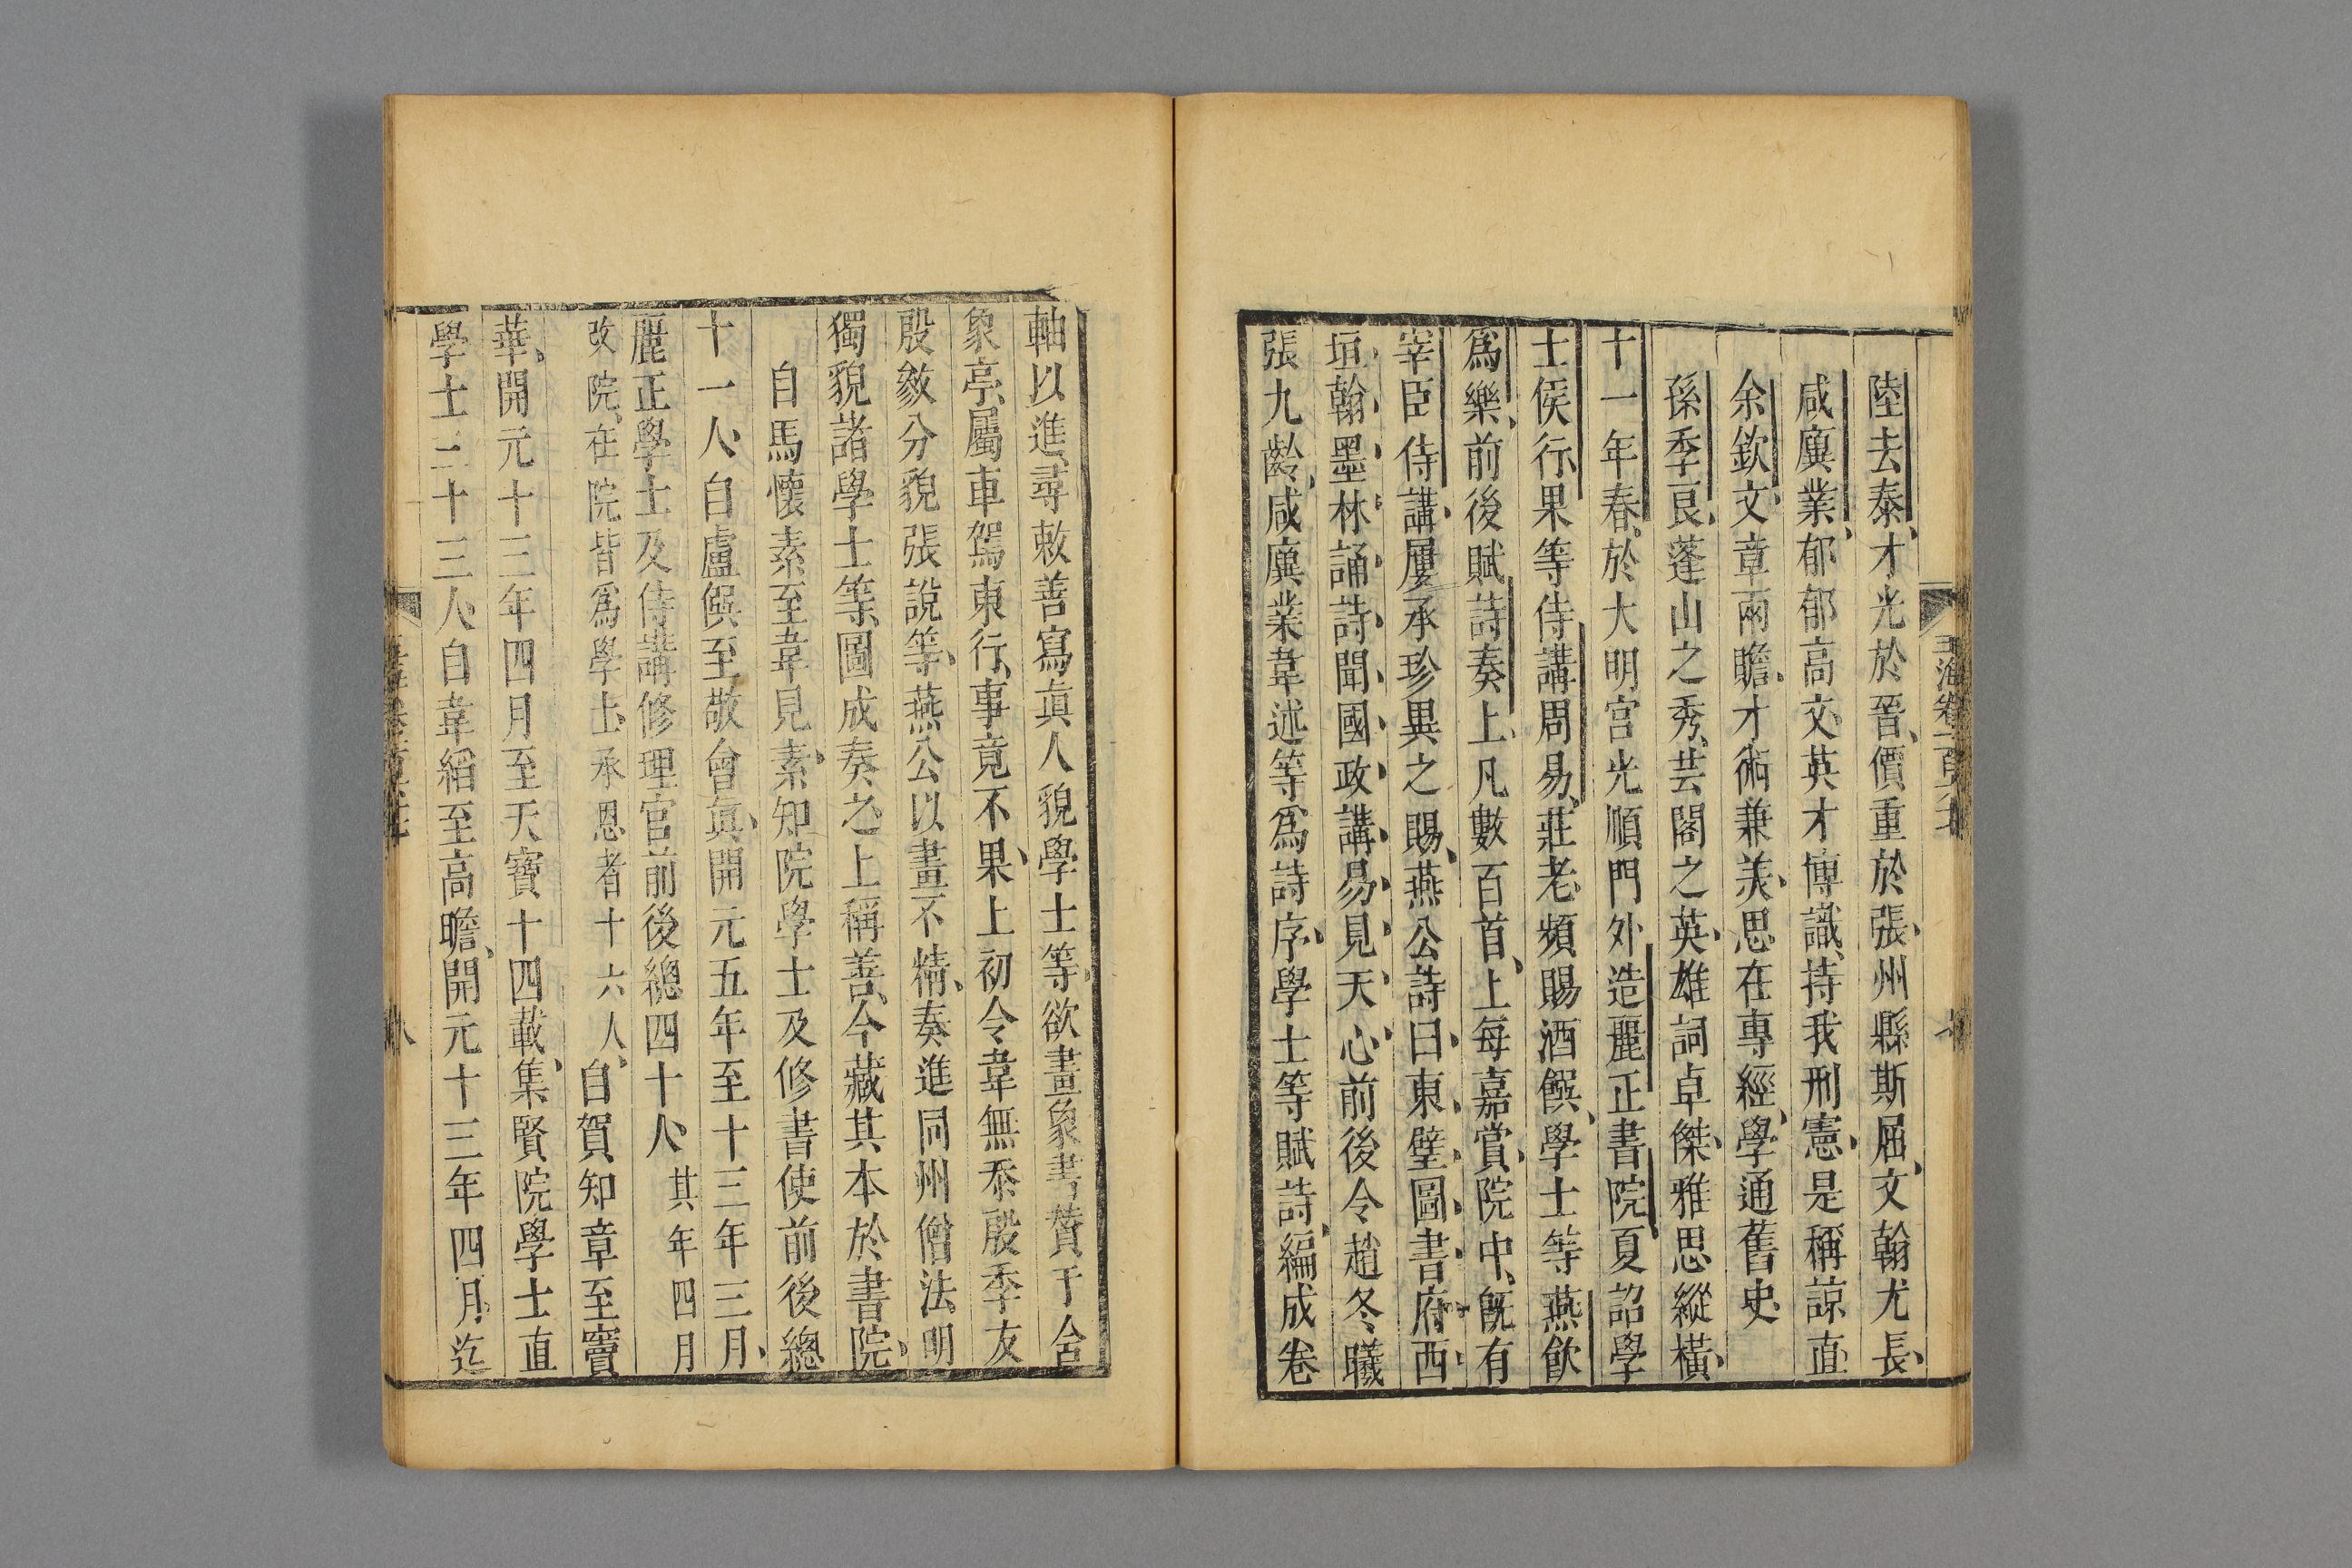 玉海卷一百六十七
七
陸去泰才光於晉價重於張州縣斯屈文翰尤長
咸廙業郁郁高文英才博識持我刑憲是稱諒直
余欽文章兩瞻才術兼美思在專經學通舊史
孫季良蓬山之秀芸閣之英雄詞卓傑雅思縱橫
十一年春於大明宮光順門外造麗正書院夏詔學
士侯行果等侍講周易莊老頻賜酒饌學士等燕飲
爲樂前後賦詩奏上凡數百首上每嘉賞院中旣有
宰臣侍講屢承珍異之賜燕公詩曰東壁圖書府西
垣翰墨林誦詩聞國政講易見天心前後令趙冬曦
張九齡咸廙業韋述等爲詩序學士等賦詩編成卷
軸以進尋敕善寫眞人貌學士等欲畫象書贊于含
象亭屬車駕東行事竟不果上初令韋無忝殷季友
殷敫分貌張說等燕公以畫不精奏進同州僧法明
獨貌諸學士等圖成奏之上稱善今藏其本於書院
自馬懷素至韋見素知院學士及修書使前後總
十一人自盧僎至敬會眞開元五年至十三年三月
麗正學士及侍講修理官前後總四十人其年四月
改院在院皆爲學士承恩者十六人自賀知章至竇
華開元十三年四月至天寶十四載集賢院學士直
學士三十三人自韋縚至高瞻開元十三年四月迄
八